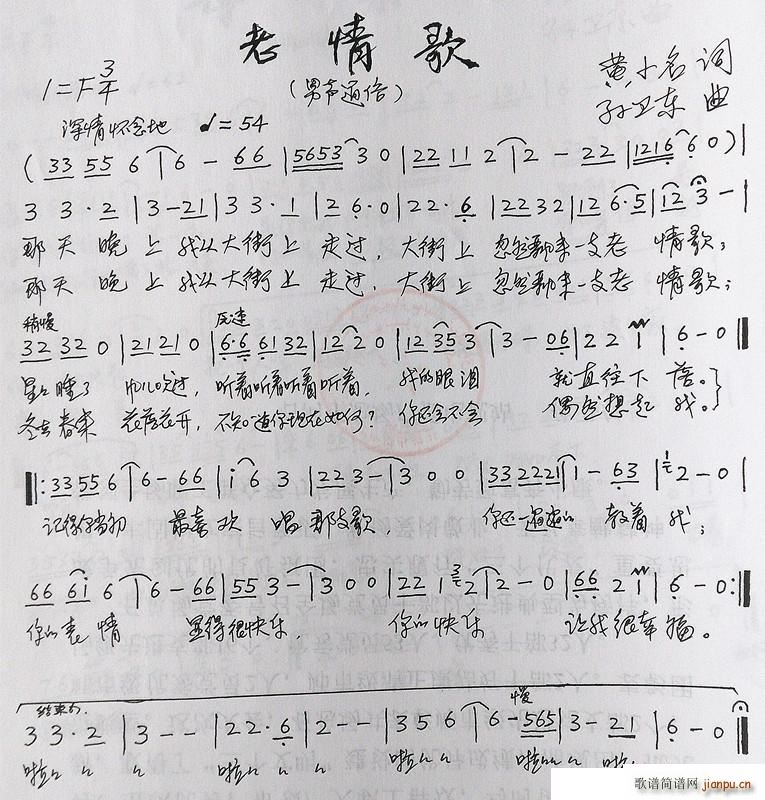 老情歌
1=F 3/4
(男声通俗)
黄小名 词
孙卫东 曲
深情怀念地 ♩=54
(33 55 6 | 6 - 66 | 5653 3 0 | 22 11 2 | 2 - 22 | 1216 6 0) |
3 3·2 | 3 - 21 | 3 3·1 | 2 6·0 | 22·6 | 2232 | 12 6·5 | 12 3 - |
那天晚上 我从大街上走过, 大街上 忽然翻来一支老情歌;
那天晚上 我从大街上走过, 大街上 忽然翻来一支老情歌;
稍慢
原速
32 32 0 | 2121 0 | 6·6 61 32 | 12 2 0 | 12 35 3 | 3 - 06 | 2 2 1 | 6 - 0
睡了 听着听着听着听着, 我的眼泪 就直往下落。
冬去春来 花落花开, 不知道你现在如何? 你还会不会 偶然想起我。
33 55 6 | 6 - 66 | i 6 3 | 22 3 - | 3 0 0 | 33 2221 | 1 - 63 | 2 - 0
记得你当初 最喜欢唱那支歌, 你还一遍遍的教着我;
66 6i 6 | 6 - 66 | 55 3 - | 3 0 0 | 22 1 2 | 2 - 0 | 66 2 1 | 6 - 0
你的表情 显得很快乐 你的快乐 让我很幸福。
结束句
慢
3 3·2 | 3 - - | 22·6 | 2 - - | 3 5 6 | 6 - 565 | 3 - 21 | 6 - 0
啦 啦 啦 啦
歌谱简谱网
jianpu.cn